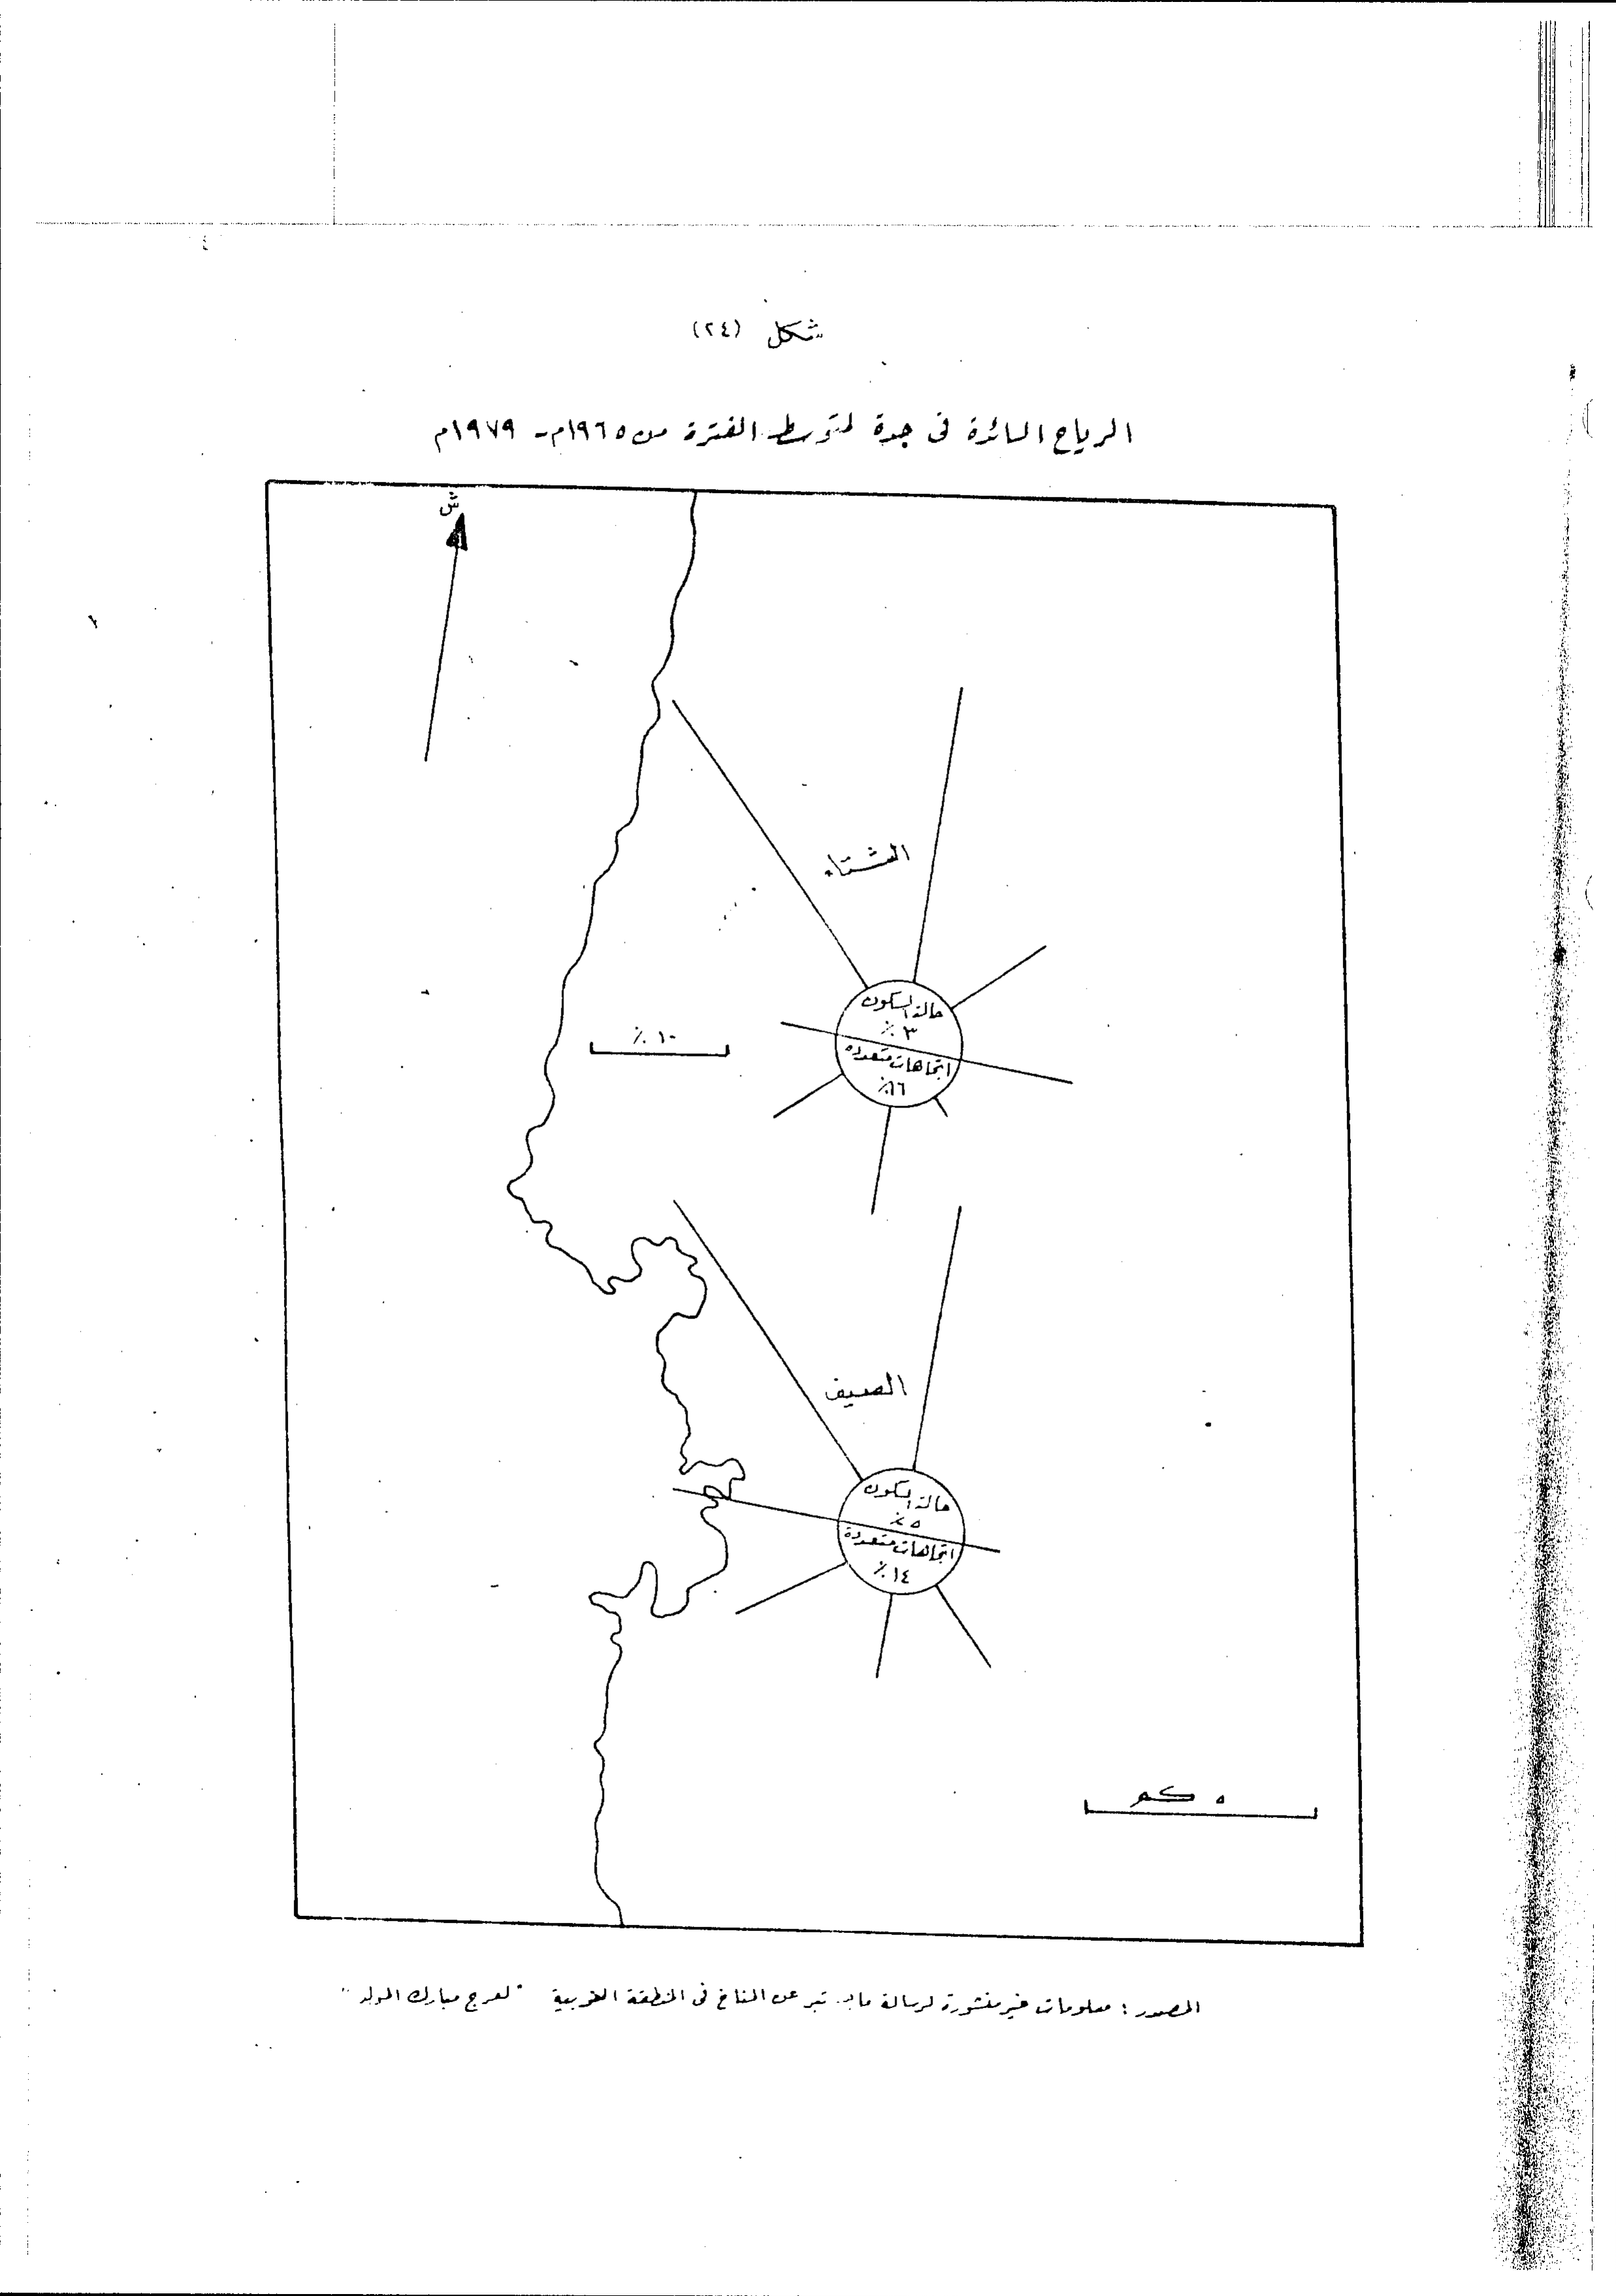 شكل (٢٤)
الرياح السائدة فى جدة لمتوسط الفترة من ١٩٦٥م - ١٩٧٩م
ش
الشتاء
حالة السكون
٣ ٪
اتجاهات متعدده
١٦٪
١٠ ٪
الصيف
حالة السكون
٥ ٪
اتجاهات متعددة
١٤ ٪
٥ كم
المصدر : معلومات غير منشورة لرسالة ماجستير عن المناخ فى المنطقة الغربية " لفرج مبارك المولد "